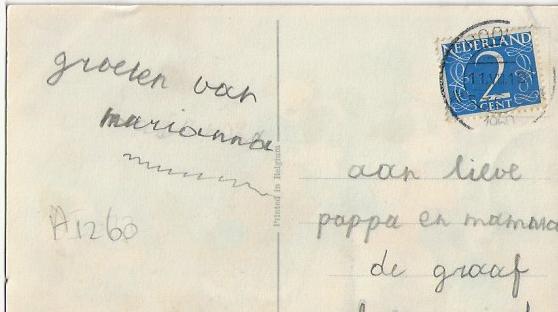 groeten van
marianna
A1260
Printed in Belgium
NEDERLAND
2
CENT
aan lieve
pappa en mamma
de graaf